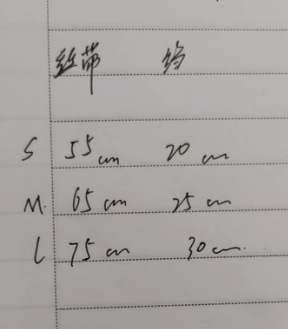 丝带 约
S 55cm 20cm
M. 65cm 25cm
L 75cm 30cm.